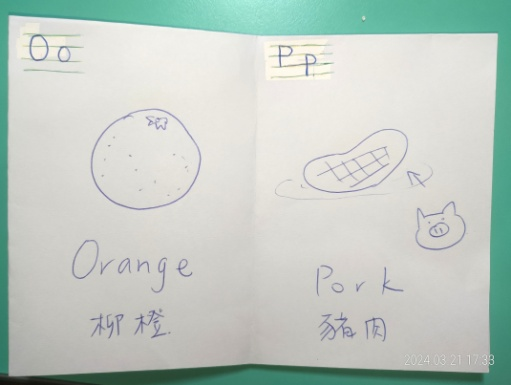 Oo
Orange
柳橙
Pp
Pork
豬肉
2024.03.21 17:33